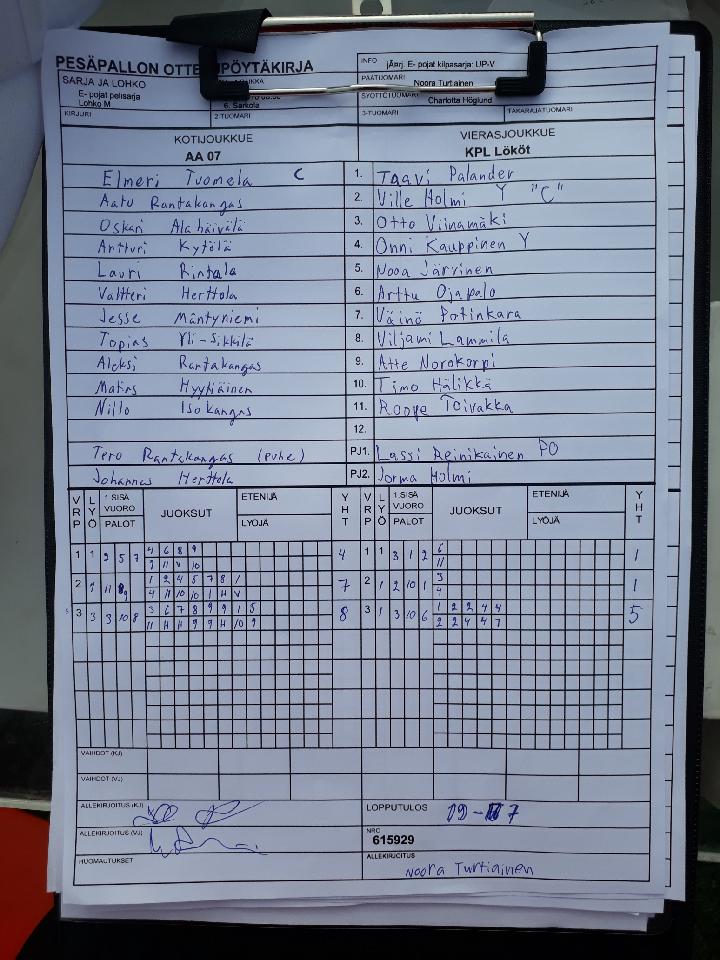 PESÄPALLON OTTELUPÖYTÄKIRJA
INFO jÄPrj. E- pojat kilpasarja: UP-V
SARJA JA LOHKO
E- pojat pelisarja
Lohko M
6. Sarkola
PÄÄTUOMARI Noora Turtiainen
SYÖTTÖTUOMARI Charlotta Höglund
KIRJURI 2-TUOMARI 3-TUOMARI TAKARAJATUOMARI
KOTIJOUKKUE VIERASJOUKKUE
AA 07 KPL Lököt
Elmeri Tuomela C 1. Taavi Palander
Aatu Rantakangas 2. Ville Holmi Y "C"
Oskari Ala häivälä 3. Otto Viinamäki
Artturi Kytölä 4. Onni Kauppinen Y
Lauri Rintala 5. Nooa Järvinen
Valtteri Herttola 6. Arttu Ojapalo
Jesse Mäntyniemi 7. Väinö Potinkara
Topias Yli-Sikkilä 8. Viljami Lammila
Aleksi Rantakangas 9. Atte Norokorpi
Matias Hyytiäinen 10. Timo Hälikkä
Niilo Isokangas 11. Roope Toivakka
12.
Tero Rantakangas (puhe) PJ1. Lassi Reinikainen PO
Johannes Herttola PJ2. Jorma Holmi
VRP LYÖ 1.SISÄ VUORO PALOT JUOKSUT ETENIJÄ LYÖJÄ YHT VRP LYÖ 1.SISÄ VUORO PALOT JUOKSUT ETENIJÄ LYÖJÄ YHT
1 1 5 7 4 6 8 9 4 1 1 3 1 2 6 1
11
2 11 1 2 4 5 7 8 1 7 2 1 2 10 1 3 1
4 11 10 10 1 H V 4
3 3 3 10 8 3 6 7 8 9 9 1 5 8 3 1 3 10 6 1 2 2 4 4 5
11 H H 9 9 H 10 9 2 2 4 4 7
VAIHDOT (KJ)
VAIHDOT (VJ)
ALLEKIRJOITUS (KJ) LOPPUTULOS 19 - 7
ALLEKIRJOITUS (VJ) NRO
615929
HUOMAUTUKSET ALLEKIRJOITUS
Noora Turtiainen